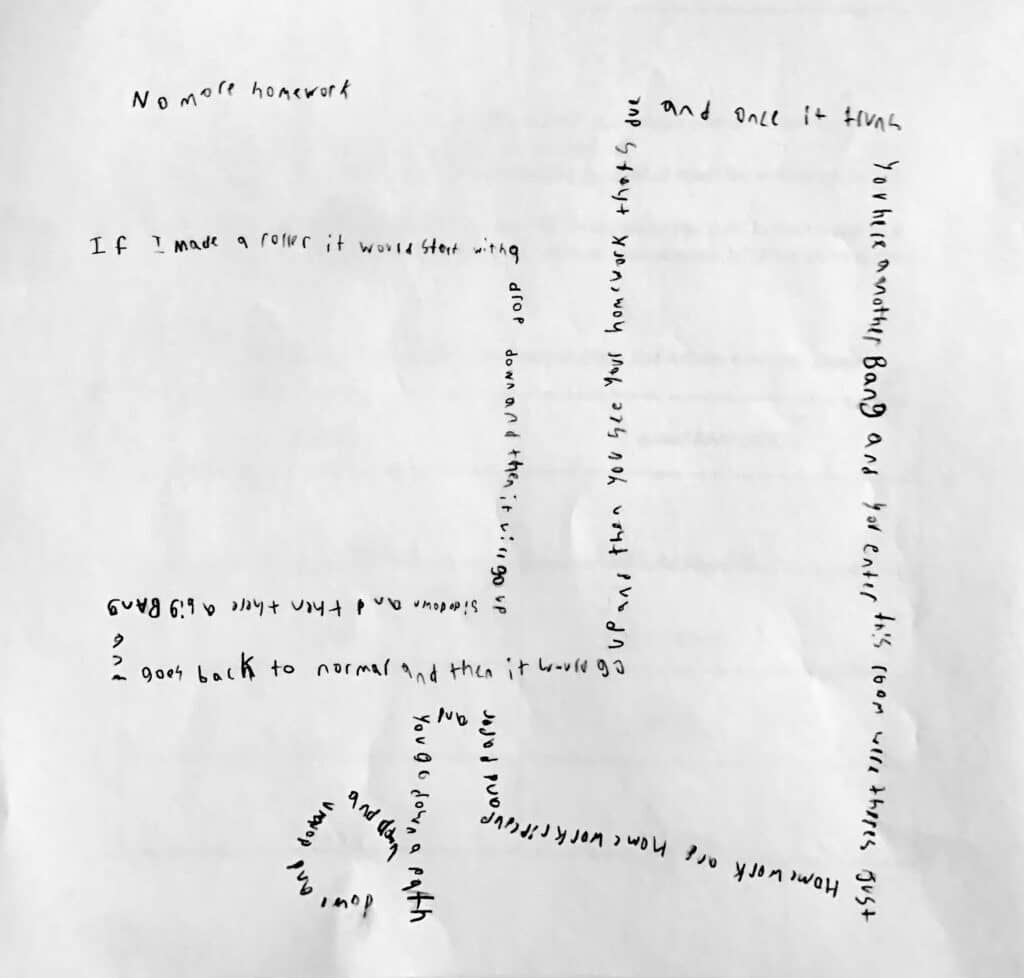 No more homework
If I made a roller it would start with a
drop down and then it will go up
sidedown and then there a big BANg
and
goes back to normal and then it would go
up and then you see your homework thats due
and once it
you here another Bang and you enter this room were theres gust
Homework are Homework riped up
and paper
and
you go down a path
and
down and
down